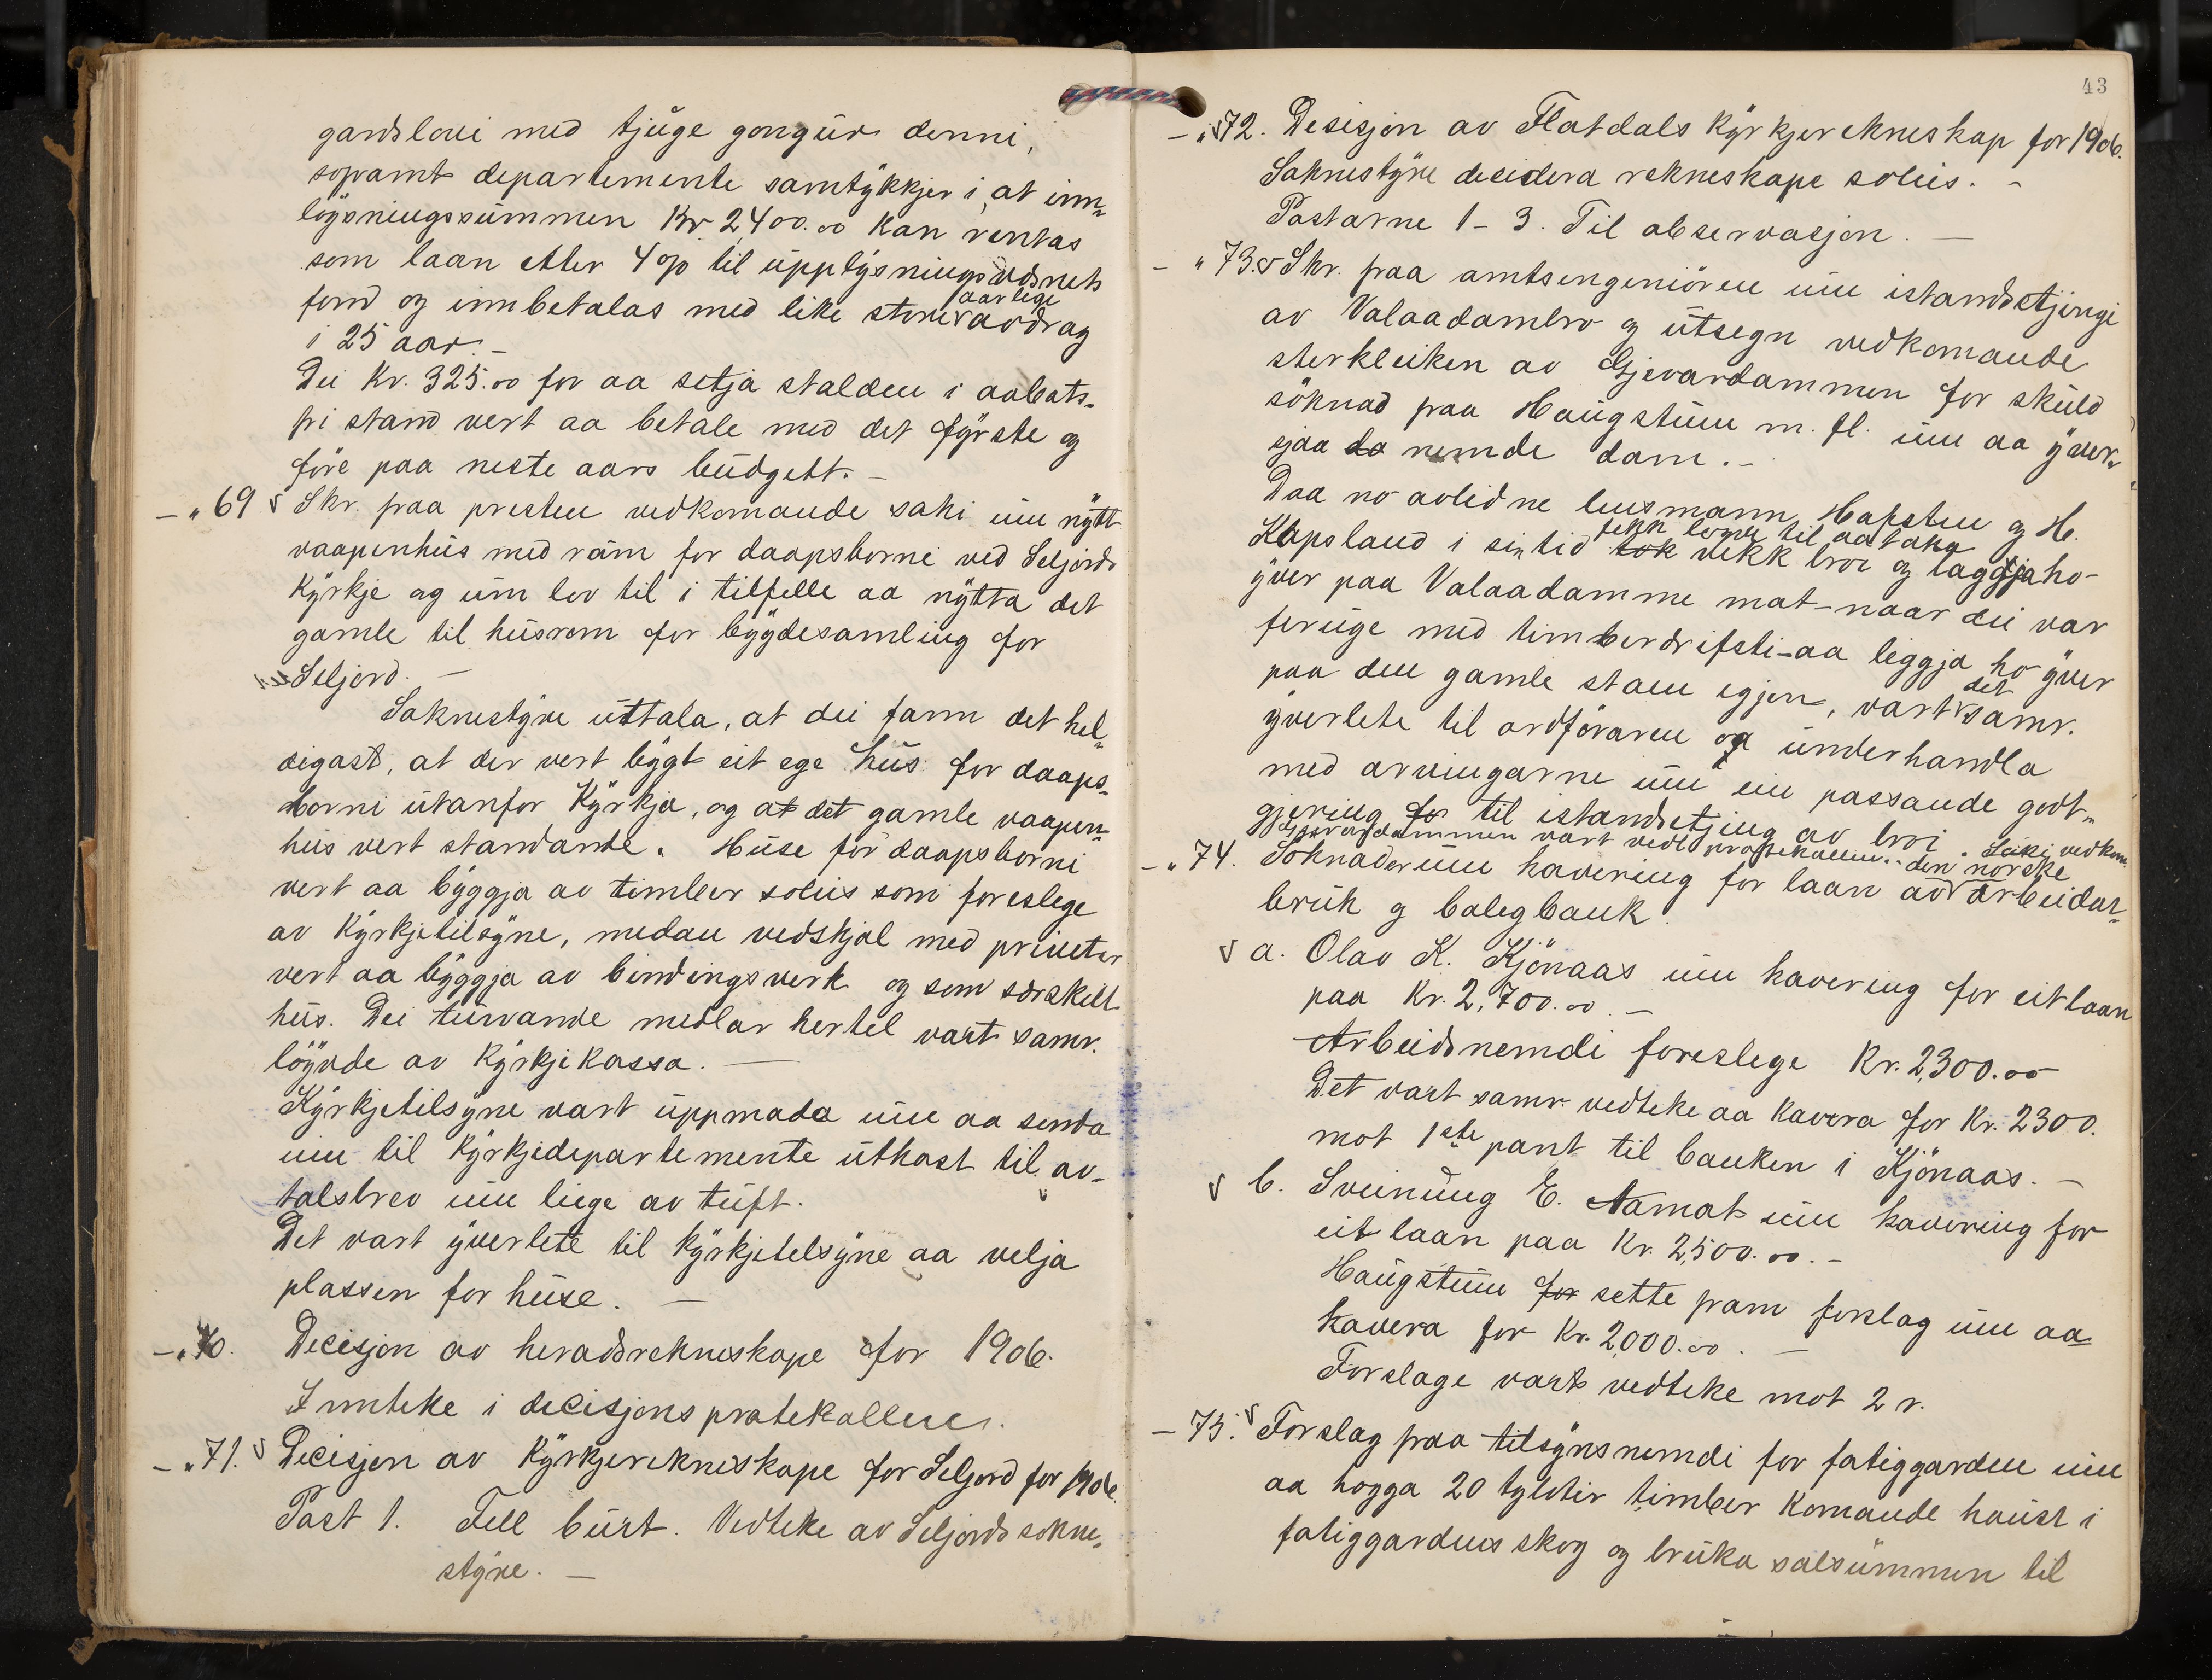 gardslovi med tjuge gongur denni,
sopramt departemente samtykkjer i, at inn-
löysningssummen Kr 2400.00 kan rentas
som laan etter 4 % til upplysningsvesnets
fond og innbetalas med like store aarlege avdrag
i 25 aar. -
Dei Kr. 325.00 for aa setja stalden i aabots-
fri stand vert aa betale med det fyrste og
före paa neste aars budgett. -
- " 69 Skr. fraa presten vedkomande saki um nytt
vaapenhus med rom for daapsborni ved Seljords
Kyrkje og um lov til i tilfelle aa nytta det
gamle til husrom for bygdesamling for
Seljord. -
Soknestyre uttala, at dei fann det hel-
digast, at der vert bygt eit ege hus for daaps-
borni utanfor Kyrkja, og at det gamle vaapen-
hus vert standande. Huse for daapsborni
vert aa byggja av timber soleis som foreslege
av Kyrkjetilsyne, medan vedskjol med priveter
vert aa byggja av bindingsverk og som særskilt
hus. Dei turvande midlar hertil vart samr.
löyvde av Kyrkjekassa. -
Kyrkjetilsyne vart uppmoda um aa senda
inn til Kyrkjedepartemente utkast til av-
talsbrev um leige av tuft.
Det vart yverlete til Kyrkjetilsyne aa velja
plassen for huse. -
- " 70. Decisjon av heradsrekneskape for 1906.
Innteke i decisjonsprotekollen.
- " 71. Decisjon av Kyrkjerekneskape for Seljord for 1906.
Post 1. Fell burt. Vedteke av Seljords sokne-
styre. -
43
- " 72. Desisjon av Flatdals Kyrkjerekneskap for 1906.
Soknestyre decidera rekneskape soleis. -
Postarne 1 - 3. Til observasjon. -
- " 73. Skr. fraa amtsengeniören um istandsetjingi
av Valaadambro og utsegn vedkomande
sterkleiken av Gjevardammen for skuld
söknad fraa Haugstuu m. fl. um aa yver-
sjaa da nemde dam. -
Daa no avlidne lensmann Hafsten og H.
Kapsland i sin tid tok fekk lov til aa taka vekk broi og leggja ho
yver paa Valaadamme mot - naar dei var
feruge med timberdrifti - aa leggja ho yver
paa den gamle staen egjen, vart det samr.
yverlete til ordföraren og underhandla
med arvingarne um ein passande godt-
gjering for til istandsetjing av broi. Saki vedkom.
Gjevardammen vart vedl. protekollen.
- " 74. Söknader um kavering for laan av den norske arbeidar-
bruk og boligbank.
a. Olav K. Kjönaas um kavering for eit laan
paa Kr. 2,700.00. -
Arbeidsnemdi foreslege Kr. 2,300.00
Det vart samr. vedteke aa kavera for Kr. 2300.
mot 1ste pant til banken i Kjönaas. -
b. Sveinung E. Aamot um kavering for
eit laan paa Kr. 2,500.00. -
Haugstuu for sette fram forslag um aa
kavera for Kr. 2,000.00. -
Forslage vart vedteke mot 2 r.
- 75. Forslag fraa tilsynsnemdi for fatiggarden um
aa hogga 20 tylvtir timber komande haust i
fatiggardens skog og bruka salsummen til